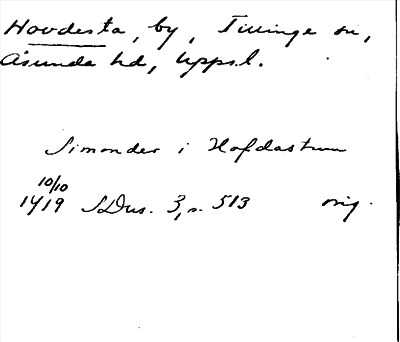 Hovdesta, by, Tillinge sn,
Åsunda hd, Uppsl.
Simonder i Hofdastum
10/10
1419 SDns. 3, s. 513 orig.